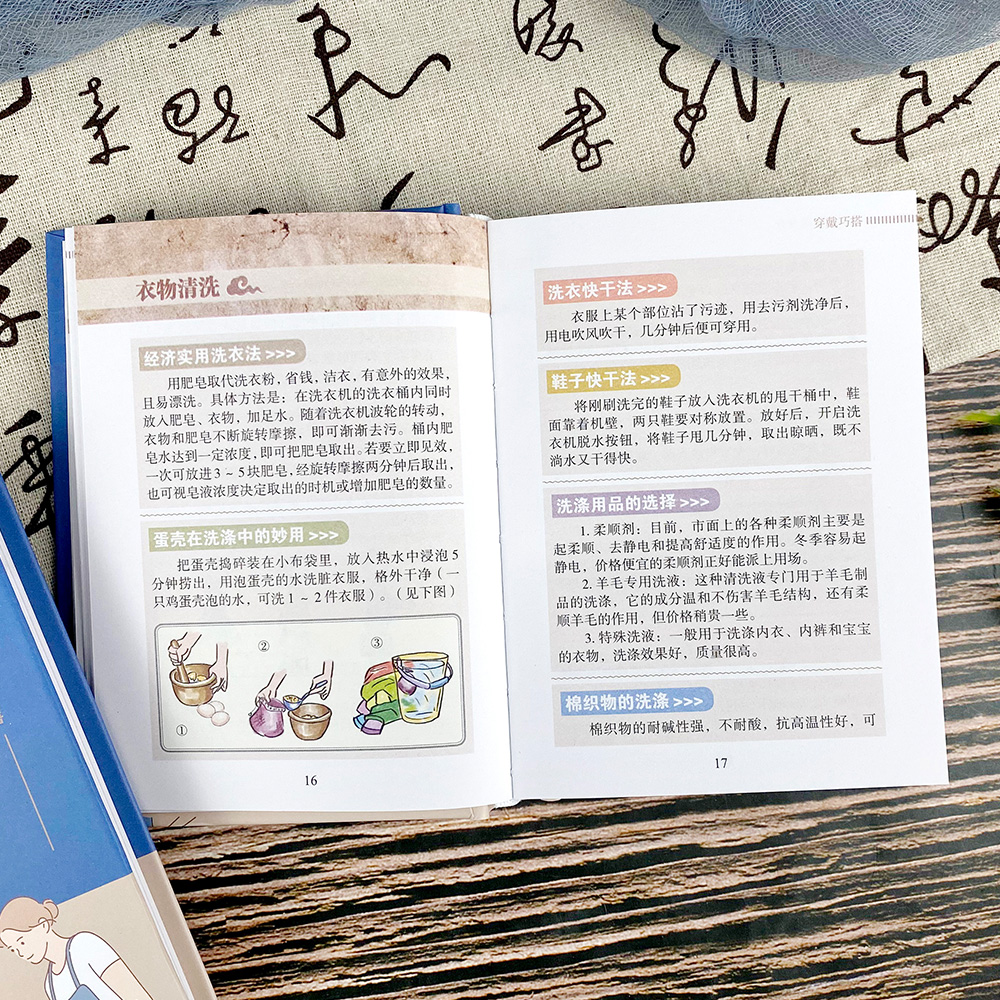 衣物清洗
经济实用洗衣法>>>
用肥皂取代洗衣粉，省钱，洁衣，有意外的效果，
且易漂洗。具体方法是：在洗衣机的洗衣桶内同时
放入肥皂、衣物，加足水。随着洗衣机波轮的转动，
衣物和肥皂不断旋转摩擦，即可渐渐去污。桶内肥
皂水达到一定浓度，即可把肥皂取出。若要立即见效，
一次可放进3～5块肥皂，经旋转摩擦两分钟后取出，
也可视皂液浓度决定取出的时机或增加肥皂的数量。
蛋壳在洗涤中的妙用>>>
把蛋壳捣碎装在小布袋里，放入热水中浸泡5
分钟捞出，用泡蛋壳的水洗脏衣服，格外干净（一
只鸡蛋壳泡的水，可洗1～2件衣服）。（见下图）
①
②
③
16
穿戴巧搭
洗衣快干法>>>
衣服上某个部位沾了污迹，用去污剂洗净后，
用电吹风吹干，几分钟后便可穿用。
鞋子快干法>>>
将刚刷洗完的鞋子放入洗衣机的甩干桶中，鞋
面靠着机壁，两只鞋要对称放置。放好后，开启洗
衣机脱水按钮，将鞋子甩几分钟，取出晾晒，既不
淌水又干得快。
洗涤用品的选择>>>
1. 柔顺剂：目前，市面上的各种柔顺剂主要是
起柔顺、去静电和提高舒适度的作用。冬季容易起
静电，价格便宜的柔顺剂正好能派上用场。
2. 羊毛专用洗液：这种清洗液专门用于羊毛制
品的洗涤，它的成分温和不伤害羊毛结构，还有柔
顺羊毛的作用，但价格稍贵一些。
3. 特殊洗液：一般用于洗涤内衣、内裤和宝宝
的衣物，洗涤效果好，质量很高。
棉织物的洗涤>>>
棉织物的耐碱性强，不耐酸，抗高温性好，可
17